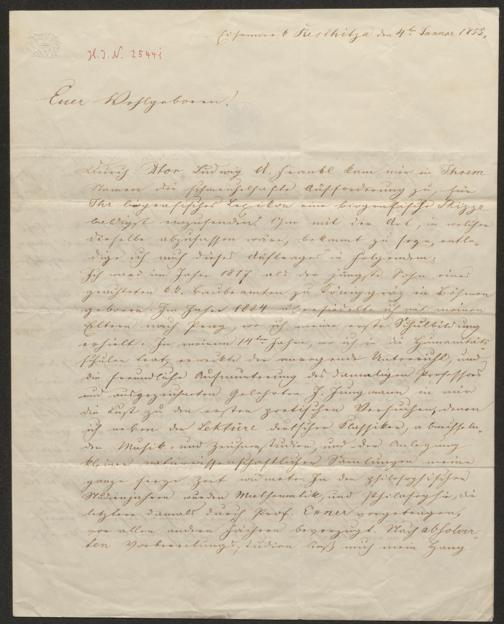 Eisenwerk Reschitza den 4ten Januar 1855.
H. I. N. 25441
Euer Wohlgeboren!
Durch Dor. Ludwig A. Frankl kam mir in Ihrem
Namen die schmeichelhafte Aufforderung zu, für
Ihr biografisches Lexikon eine biografische Skizze
baldigst einzusenden. Um mit der Art, in welcher
dieselbe abzufassen wäre, bekannt zu seyn, entle-
dige ich mich dieses Auftrages in Folgendem:
Ich war im Jahre 1817 als der jüngste Sohn eines
geachteten k. k. Baubeamten zu Königgrätz in Böhmen
geboren. Im Jahre 1824 übersiedelte ich mit meinen
Eltern nach Prag, wo ich meine erste Schulbildung
erhielt. In meinem 14ten Jahre, wo ich in die Humanitäts
schulen trat, erweckte der anregende Unterricht, und
die freundliche Aufmunterung des damaligen Professors
und ausgezeichneten Gelehrten J. Jungmann in mir
die Lust zu den ersten poetischen Versuchen, denen
ich neben der Lektüre deutscher Klassiker, abwechseln-
den Musik- und Zeichenstudien, und der Anlegung
kleiner naturwissenschaftlicher Samlungen meine
ganze freye Zeit widmete. In den philosophischen
Studienjahren wurden Mathematik, und Philosophie, die
letztere damals durch Prof. Exner vorgetragen,
vor allen andern Fächern bevorzugt. Nach absolvir-
ten Vorbereitungsstudien ließ mich mein Hang